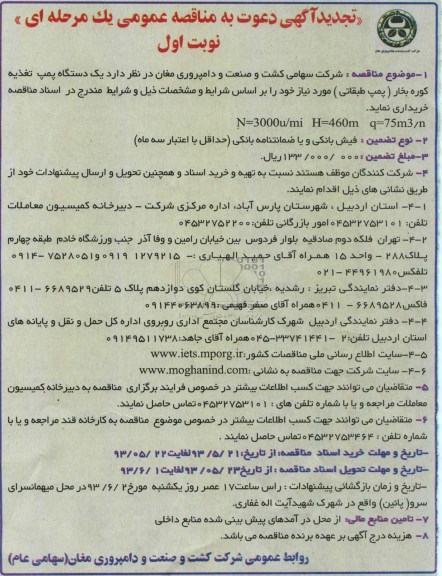 «تجدیدآگهی دعوت به مناقصه عمومی یك مرحله ای»
نوبت اول
۱-موضوع مناقصه : شرکت سهامی کشت و صنعت و دامپروری مغان در نظر دارد یک دستگاه پمپ تغذیه
کوره بخار ( پمپ طبقاتی ) مورد نیاز خود را بر اساس شرایط و مشخصات ذیل و شرایط مندرج در اسناد مناقصه
خریداری نماید.
N=3000u/mi H=460m q=75m3/n
۲- نوع تضمین : فیش بانکی و یا ضمانتنامه بانکی (حداقل با اعتبار سه ماه)
۳-مبلغ تضمین : ۱۳۳/۰۰۰/۰۰۰ ریال.
۴- شرکت کنندگان موظف هستند نسبت به تهیه و خرید اسناد و همچنین تحویل و ارسال پیشنهادات خود از
طریق نشانی های ذیل اقدام نمایند.
۴-۱- استان اردبیل ، شهرستان پارس آباد، اداره مرکزی شرکت - دبیرخانه کمیسیون معاملات
تلفن: ۰۴۵۳۲۷۵۳۱۰۱ امور بازرگانی تلفن: ۰۴۵۳۲۷۵۲۲۰۰
۴-۲- تهران فلکه دوم صادقیه بلوار فردوس بین خیابان رامین و وفا آذر جنب ورزشگاه خادم طبقه چهارم
پلاک۲۸۸ - واحد ۱۵ همراه آقای حمید الهیاری :- ۰۹۱۹۱۲۷۹۲۱۵ - ۰۹۱۴۷۵۲۸۰۵۱
تلفکس ۴۴۹۶۱۹۸۰-۰۲۱
۴-۳-دفتر نمایندگی تبریز : رشدیه ،خیابان گلستان کوی دوازدهم پلاک ۵ تلفن ۶۶۸۹۵۲۹-۰۴۱۱
فاکس ۶۶۸۹۵۲۸ - ۰۴۱۱ همراه آقای صفر فهیمی:۰۹۱۴۴۰۶۳۸۹۹
۴-۴- دفتر نمایندگی اردبیل شهرک کارشناسان مجتمع اداری روبروی اداره کل حمل و نقل و پایانه های
استان اردبیل تلفن:۲ -۳۳۷۴۱۴۴۱-۰۴۵ همراه آقای جاهد:۰۹۱۴۹۵۱۱۷۳۸
۴-۵-سایت اطلاع رسانی ملی مناقصات کشور:www.iets.mporg.ir
۴-۶- سایت شرکت جهت مناقصه به نشانی :www.moghanind.com
۵- متقاضیان می توانند جهت کسب اطلاعات بیشتر در خصوص فرایند برگزاری مناقصه به دبیرخانه کمیسیون
معاملات مراجعه و یا با شماره تلفن های : ۰۴۵۳۲۷۵۳۱۰۱ تماس حاصل نمایند.
۶- متقاضیان می توانند جهت کسب اطلاعات بیشتر در خصوص موضوع مناقصه به کارخانه قند مراجعه و یا با
شماره تلفن : ۰۴۵۳۲۷۵۳۴۶۴ تماس حاصل نمایند .
-تاریخ و مهلت خرید اسناد مناقصه: از تاریخ: ۹۳/۵/۲۱ لغایت ۹۳/۰۵/۲۲
-تاریخ و مهلت تحویل اسناد مناقصه : از تاریخ ۹۳/۰۵/۲۳ لغایت ۹۳/۶/۱
-تاریخ و زمان بازگشائی پیشنهادات : راس ساعت۱۷ عصر روز یکشنبه مورخ۹۳/۶/۲ در محل میهمانسرای
سرو( پائین) واقع در شهرک شهیدآیت اله غفاری.
۷- تامین منابع مالی: از محل در آمدهای پیش بینی شده منابع داخلی
۸- هزینه درج آگهی بر عهده برنده مناقصه می باشد.
روابط عمومی شرکت کشت و صنعت و دامپروری مغان(سهامی عام)